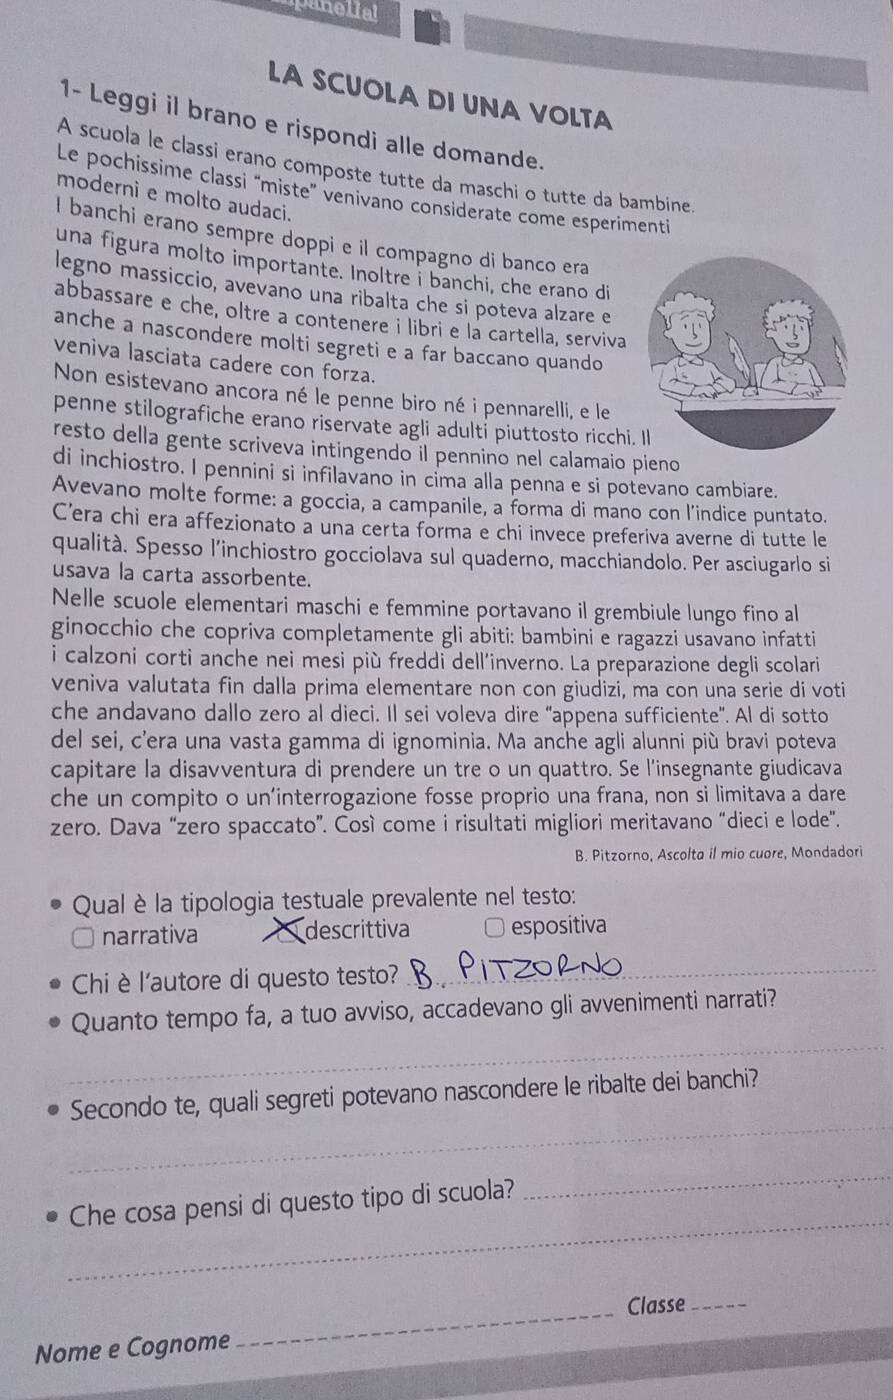 LA SCUOLA DI UNA VOLTA
1- Leggi il brano e rispondi alle domande.
A scuola le classi erano composte tutte da maschi o tutte da bambine.
Le pochissime classi “miste” venivano considerate come esperimenti
moderni e molto audaci.
I banchi erano sempre doppi e il compagno di banco era
una figura molto importante. Inoltre i banchi, che erano di
legno massiccio, avevano una ribalta che si poteva alzare e
abbassare e che, oltre a contenere i libri e la cartella, serviva
anche a nascondere molti segreti e a far baccano quando
veniva lasciata cadere con forza.
Non esistevano ancora né le penne biro né i pennarelli, e le
penne stilografiche erano riservate agli adulti piuttosto ricchi. Il
resto della gente scriveva intingendo il pennino nel calamaio pieno
di inchiostro. I pennini si infilavano in cima alla penna e si potevano cambiare.
Avevano molte forme: a goccia, a campanile, a forma di mano con l'indice puntato.
C'era chi era affezionato a una certa forma e chi invece preferiva averne di tutte le
qualità. Spesso l'inchiostro gocciolava sul quaderno, macchiandolo. Per asciugarlo si
usava la carta assorbente.
Nelle scuole elementari maschi e femmine portavano il grembiule lungo fino al
ginocchio che copriva completamente gli abiti: bambini e ragazzi usavano infatti
i calzoni corti anche nei mesi più freddi dell'inverno. La preparazione degli scolari
veniva valutata fin dalla prima elementare non con giudizi, ma con una serie di voti
che andavano dallo zero al dieci. Il sei voleva dire “appena sufficiente”. Al di sotto
del sei, c'era una vasta gamma di ignominia. Ma anche agli alunni più bravi poteva
capitare la disavventura di prendere un tre o un quattro. Se l'insegnante giudicava
che un compito o un'interrogazione fosse proprio una frana, non si limitava a dare
zero. Dava “zero spaccato”. Così come i risultati migliori meritavano “dieci e lode”.
B. Pitzorno, Ascolta il mio cuore, Mondadori
• Qual è la tipologia testuale prevalente nel testo:
narrativa descrittiva espositiva
• Chi è l'autore di questo testo? B. PITZORNO
• Quanto tempo fa, a tuo avviso, accadevano gli avvenimenti narrati?
• Secondo te, quali segreti potevano nascondere le ribalte dei banchi?
• Che cosa pensi di questo tipo di scuola?
Classe
Nome e Cognome